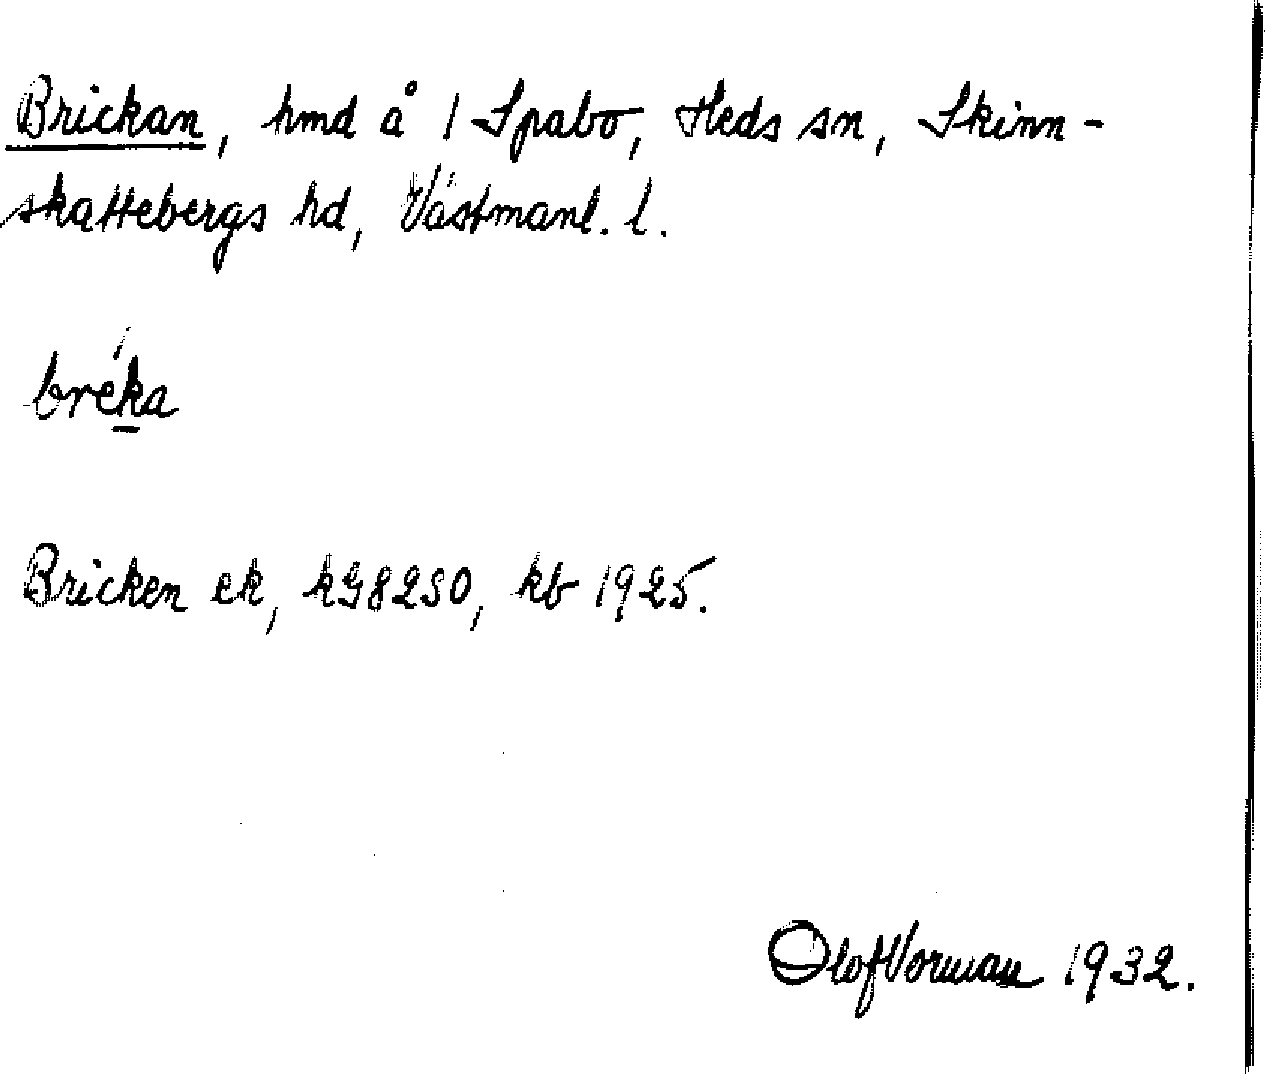 Brickan, hmd å 1 Spabo, Heds sn, Skinn-
skattebergs hd, Västmanl. l.
bréka
Bricken ek, kG8250, kb 1925.
Olof Vorman 1932.